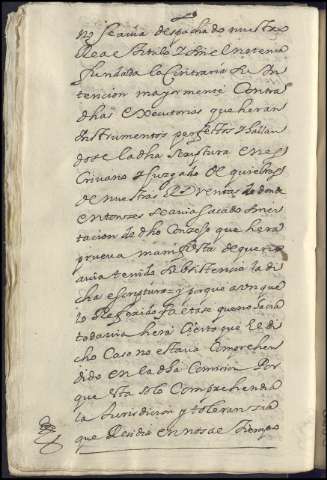 no se avia despachado nuestro
Real titulo y Emelnotenia
fundada la contraria su In
tencion mayormente contra
dhas executorias que heran
Instrumentos perfettos y hallan
dose la dha escriptura en es
crivano y Juzgado de quiebras
de nuestras Rl Rentas de donde
entonzes se avia sacado
tacion de dho Consejo que hera
prueva manifiesta de que no
avia tenido subsistencia la di
cha escriptura y porque aunque
lo Referido zetase que no lo cia
todavia hera Cierto que el di
cho Caso no estava Comprehen
dido en la dha Comision Por
que esta solo Comprehendia
la Jurisdicion y toleranzia
que Residia en nos de tiempo